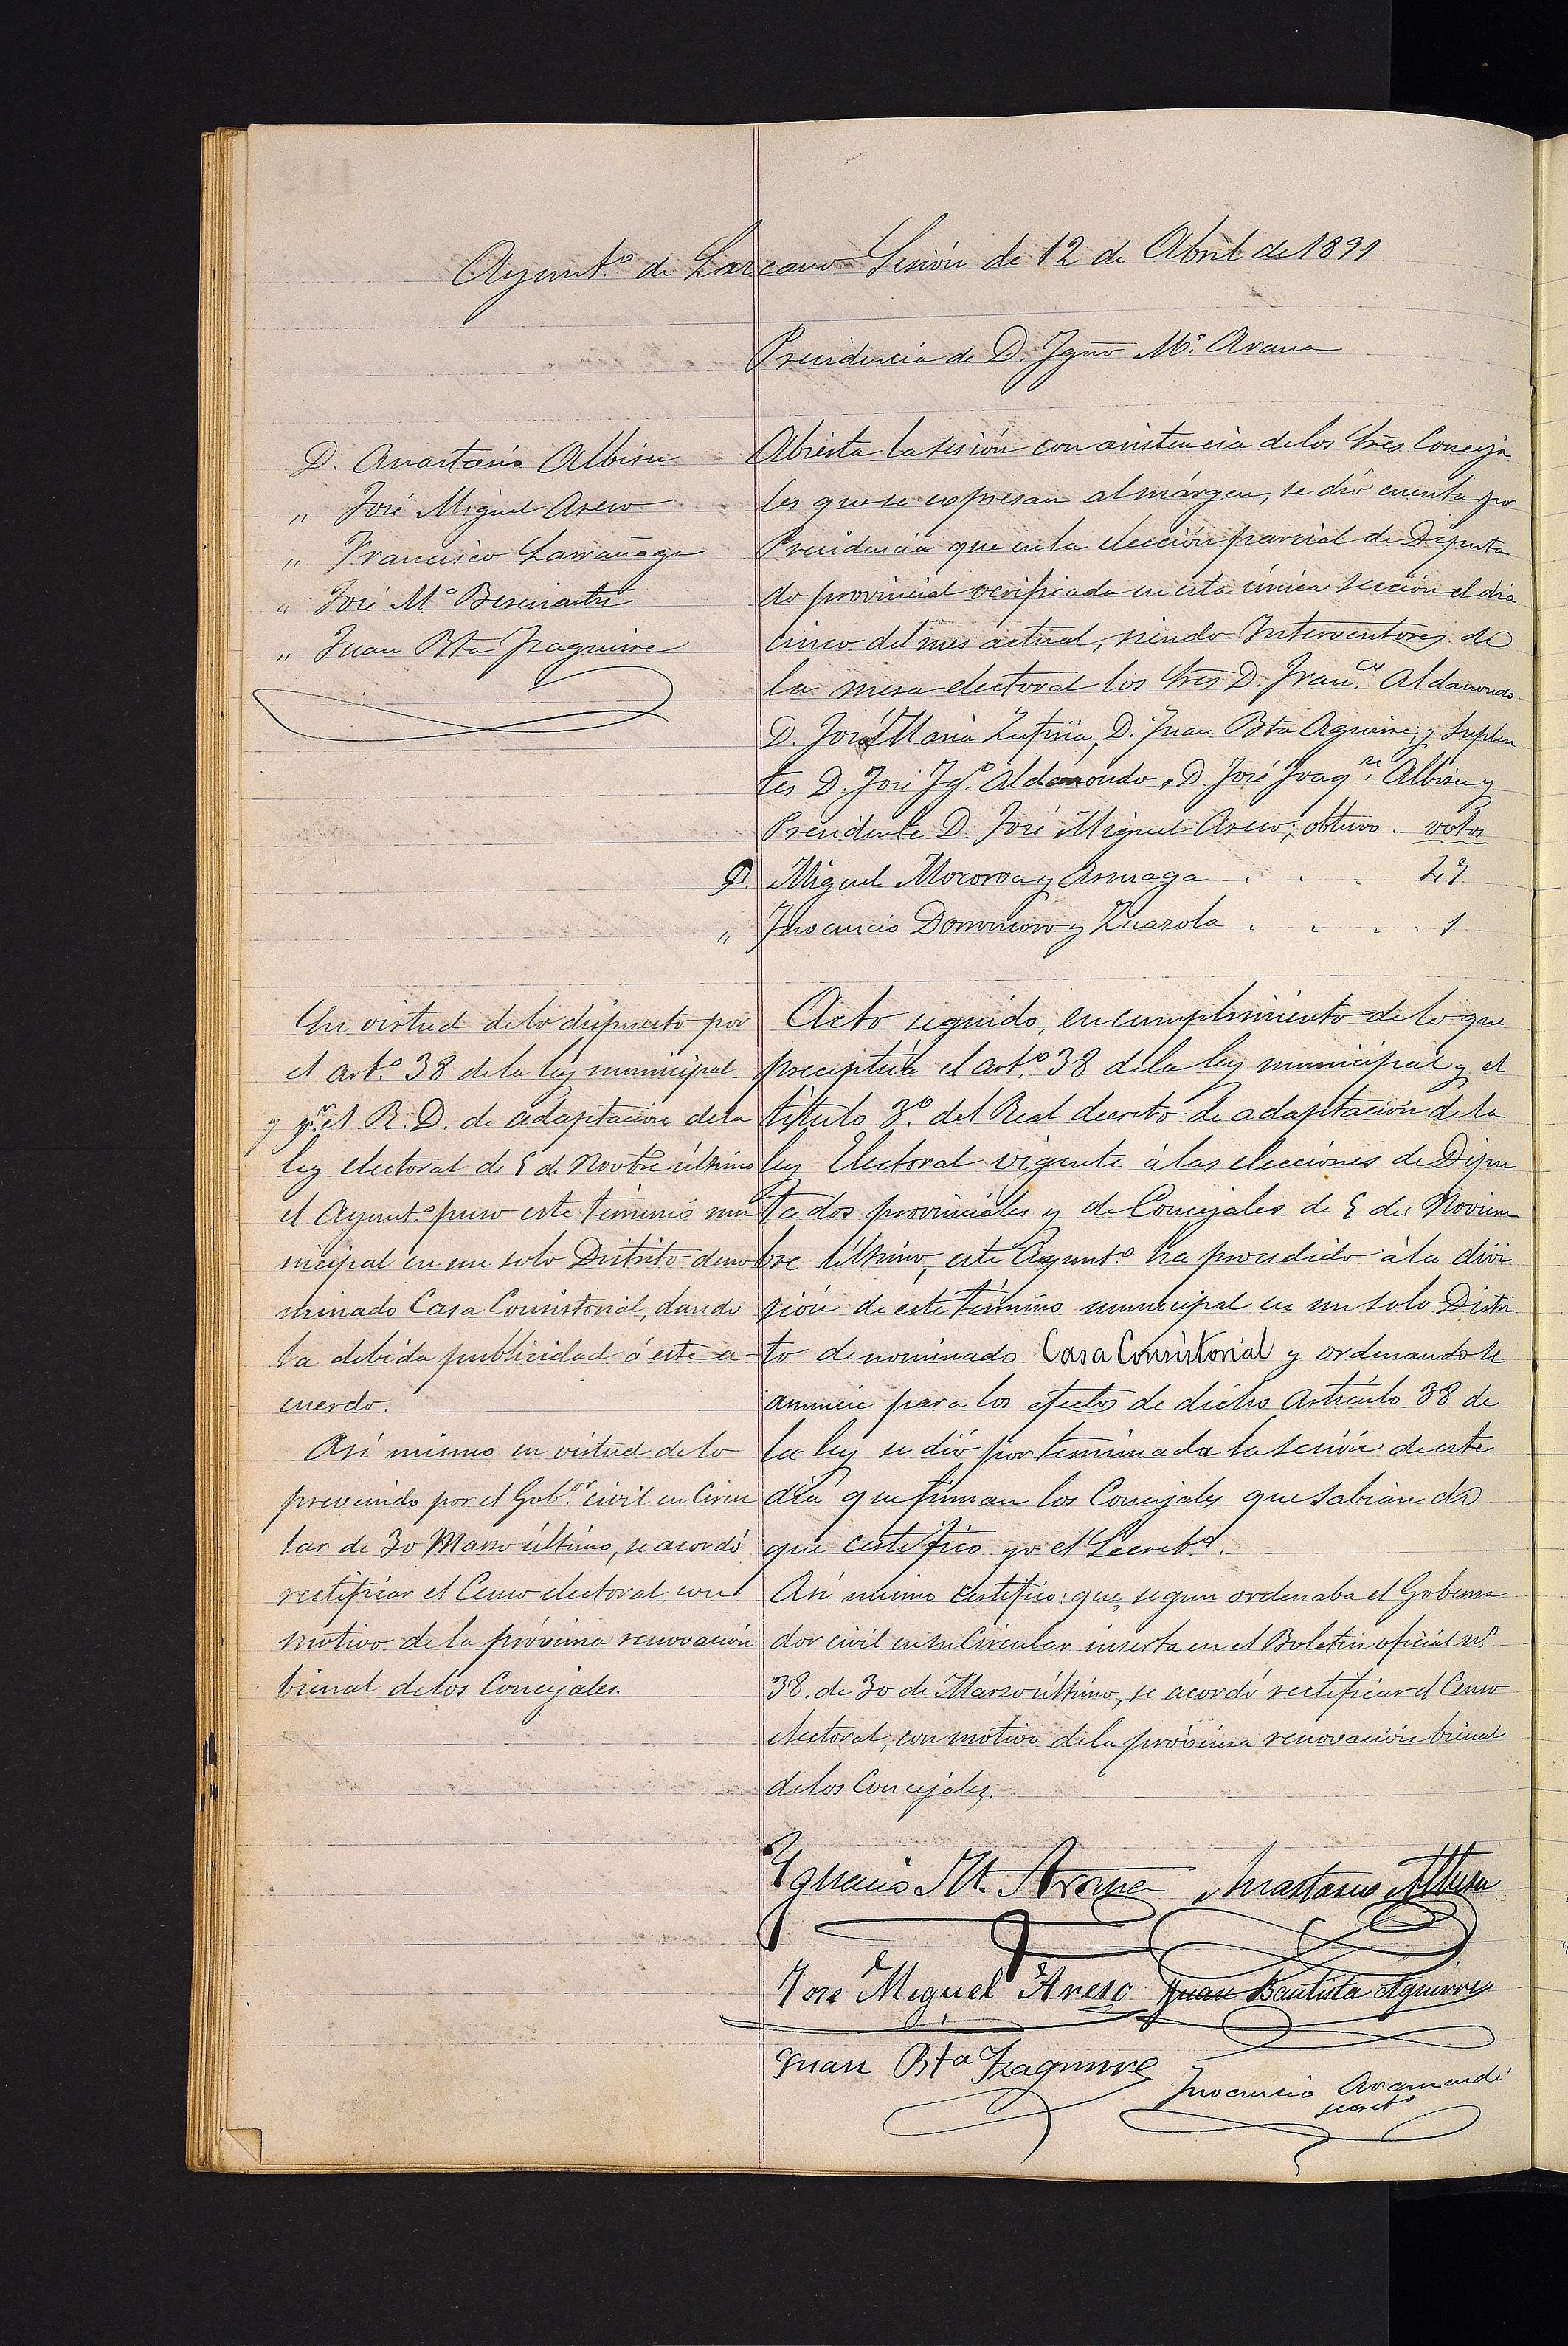 Ayunt.º de Lazcano Sesión de 12 de Abril de 1891
Presidencia de D. Igno M.ª Arana
D. Anastasio Albisu
„ José Miguel Aseso
„ Francisco Larrañaga
„ José M.ª
„ Juan Bta Izaguirre
Abierta la sesión con asistencia de los Sres Conceja
les que se expresan al márgen, se dió cuenta por
Presidencia que en la elección parcial de Diputa
do provincial verificada en esta única sección el dia
cinco del mes actual, siendo Interventores de
la mesa electoral los Sres D. Fran.co Aldamondo
D. José Maria Zufiria, D. Juan Bta Aguirre, y Suplen
tes D. José Ig.º Aldamondo, D. José Joaq.n Albisu y
Presidente D. José Miguel Aseso; obtuvo. votos
D. Miguel Mocoroa y Arsuaga . . . 27
„ Inocencio Dorronsoro y Zuazola . . . . 1
En virtud de lo dispuesto por
el art.º 38 de la ley municipal
y pr. el R. D. de adaptacion de la
ley electoral de 5 de Novbre último
el Ayunt.º puso este término mu
nicipal en un solo Distrito deno
minado Casa Consistorial, dando
la debida publicidad á este a-
cuerdo.
Así mismo en virtud de lo
prevenido por el Gob.or civil en Circu
lar de 30 Marzo último, se acordó
rectificar el Censo electoral con
motivo de la próxima renovación
bienal de los Concejales.
Acto seguido, en cumplimiento de lo que
preceptúa el art.º 38 de la ley municipal y el
título 3.º del Real decreto de adaptación de la
ley Electoral vigente á las elecciones de Dipu
tados provinciales y de Concejales de 5 de Noviem
bre último, este Ayunt.º ha procedido á la divi
sión de este término municipal en un solo Distri
to denominado Casa Consistorial y ordenando se
anuncie para los efectos de dicho artículo 38 de
la ley se dió por terminada la sesión de este
día que firman los Concejales que sabian de
que certifico yo el Secret.º.
Así mismo certifico: que, segun ordenaba el Goberna
dor civil en su Circular inserta en el Boletin oficial n.º
38. de 30 de Marzo último, se acordó rectificar el Censo
electoral, con motivo de la próxima renovación bienal
de los Concejales.
Ygnacio M. Arana Anastasio Albisu
Jose Miguel Areso Juan Bautista Aguirre
Juan Bta Izaguirre
Inocencio Aramendi
secreto